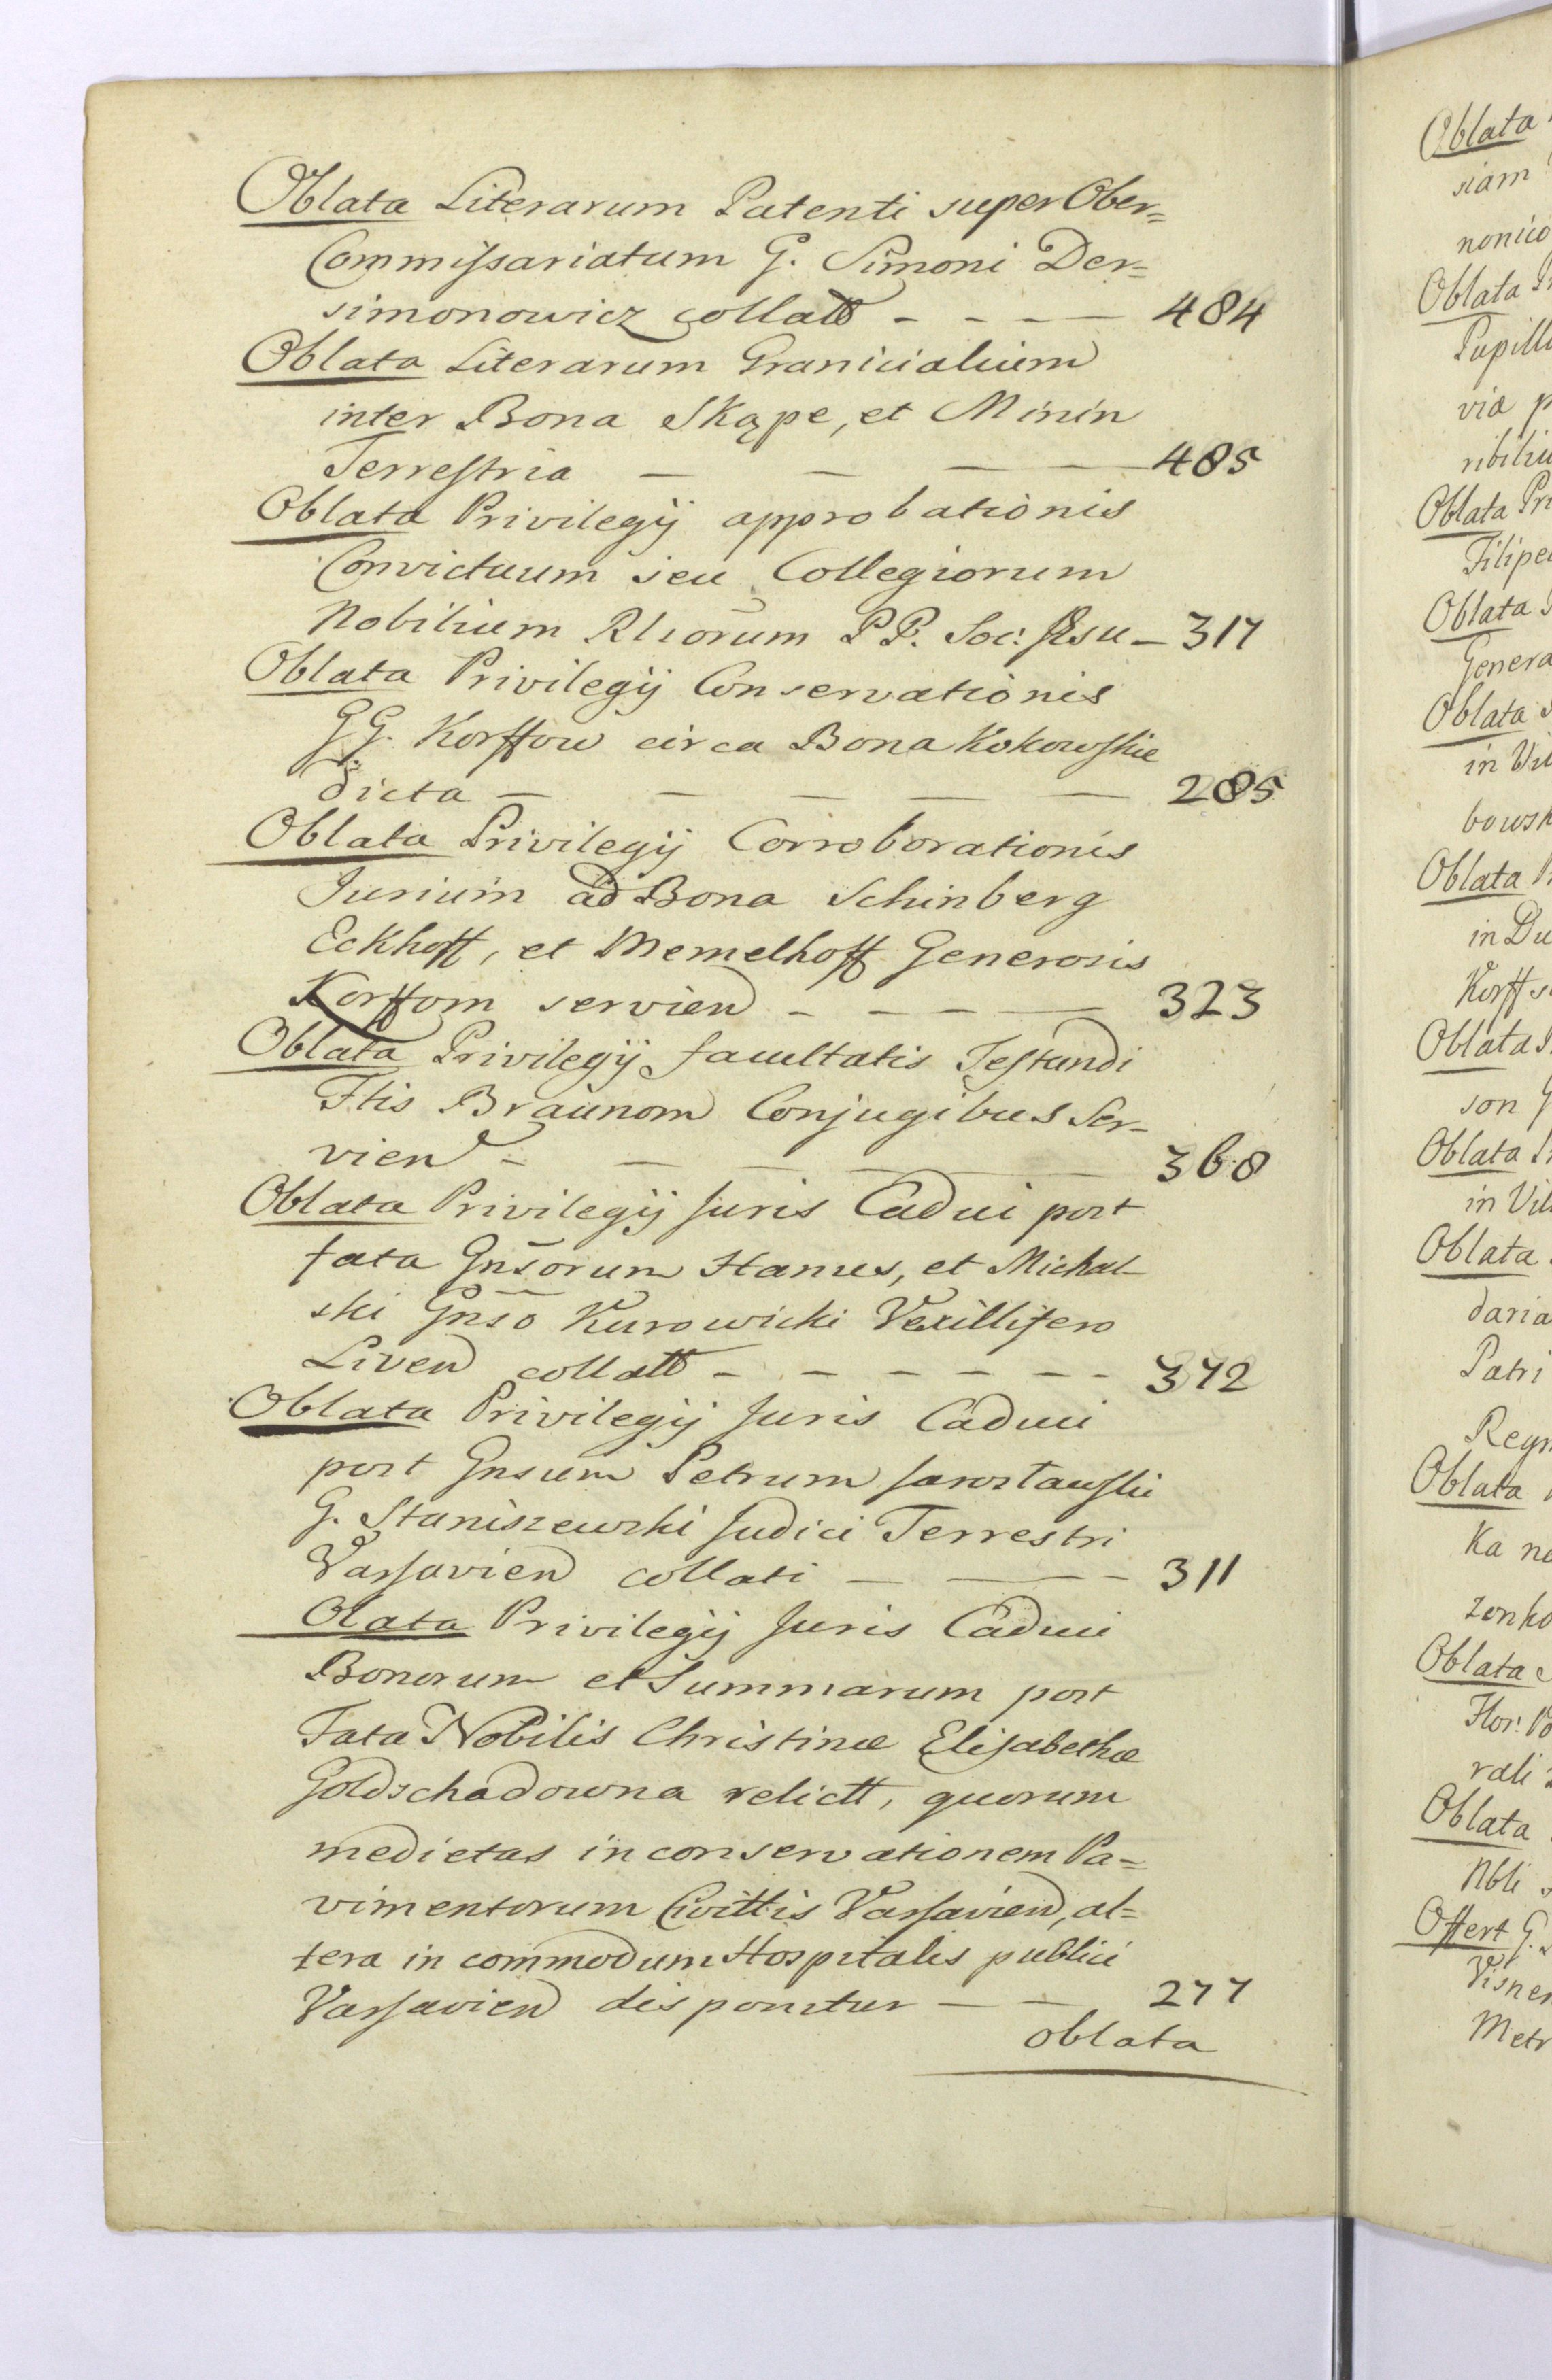 Oblata Literarum Patenti super Ober=
Commissariatum G. Simoni Der=
simonowicz collatt - - - - 484
Oblata Literarum Granicialium
inter Bona Skąpe, et Minin
Terrestria - - - - 485
Oblata Privilegij approbationis
Convictuum seu Collegiorum
Nobilium Rliorum PP. Soc: Jesu - 317
Oblata Privilegij Conservationis
GG. Korffow circa Bona Kokowskie
dicta - - - - - 285
Oblata Privilegij Corroborationis
Jurium ad Bona Schinberg
Eckhoff, et Memelhoff Generosis
Korffom servien - - - - 323
Oblata Privilegij facultatis Testandi
Ftis Braunom Conjugibus Ser-
vien - - - - - 368
Oblata Privilegij Juris Caduci post
fata Gnsorum Hanus, et Michal-
ski Gnso Kurowicki Vexillifero
Liven collatt - - - - - - 372
Oblata Privilegij Juris Caduci
post Gnsum Petrum
G. Staniszewski Judici Terrestri
Varsavien collati - - - 311
Olata Privilegij Juris Caduci
Bonorum et Summarum post
Fata Nobilis Christinæ Elisabethæ
Goldschadowna relictt, quorum
medietas in conservationem Pa=
vimentorum Civittis Varsavien, al=
tera in commodum Hospitalis publici
Varsavien disponitur - - 277
oblata
Oblata
siam
nonico
Oblata
Pupill
via p
ribiliu
Oblata Pri
Filipe
Oblata
Genera
Oblata
in Vil
bowsk
Oblata
in Du
Korff s
Oblata
son G
Oblata
in Vil
Oblata
daria
Patri
Regn
Oblata
Ka na
zonko
Oblata
Flor: Po
rali
Oblata
Nbli
Offert G.
Visner
Metr